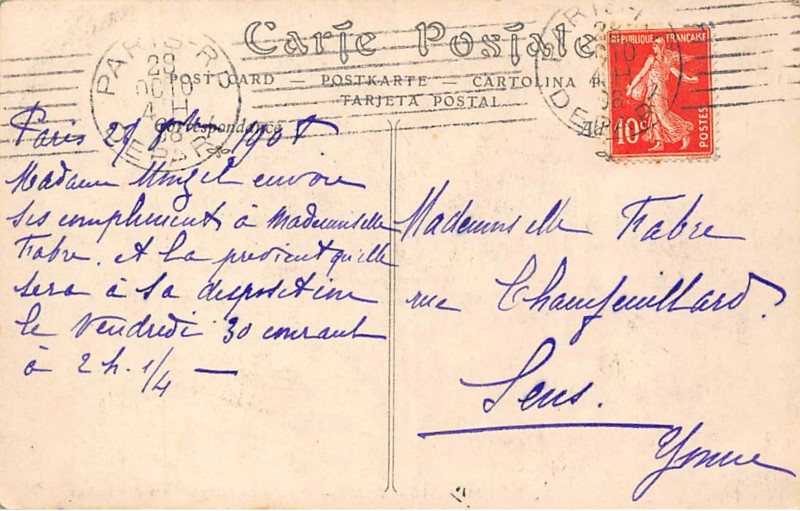 Carte Postale
POST CARD — POSTKARTE — CARTOLINA
TARJETA POSTAL
Correspondance
REPUBLIQUE FRANÇAISE
10
POSTES
PARIS
28
OCTO
4 H
08
DEPART
Paris 28 1908
Madame envoie
ses compliments à Mademoiselle
Fabre. et la prévient qu'elle
sera à sa disposition
le vendredi 30 courant
à 2 h. 1/4 —
Mademoiselle Fabre
rue Champfeuillard.
Sens.
Yonne